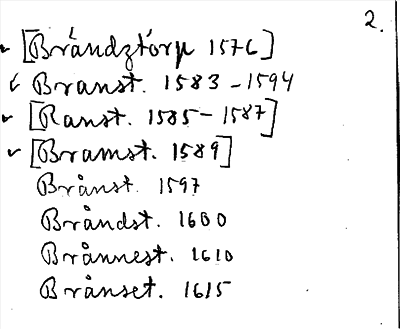 2.
[Bråndztorp 1576]
Branst. 1583-1594
[Ranst. 1585-1587]
[Bramst. 1589]
Brånst. 1597
Bråndst. 1600
Brånnest. 1610
Brånset. 1615